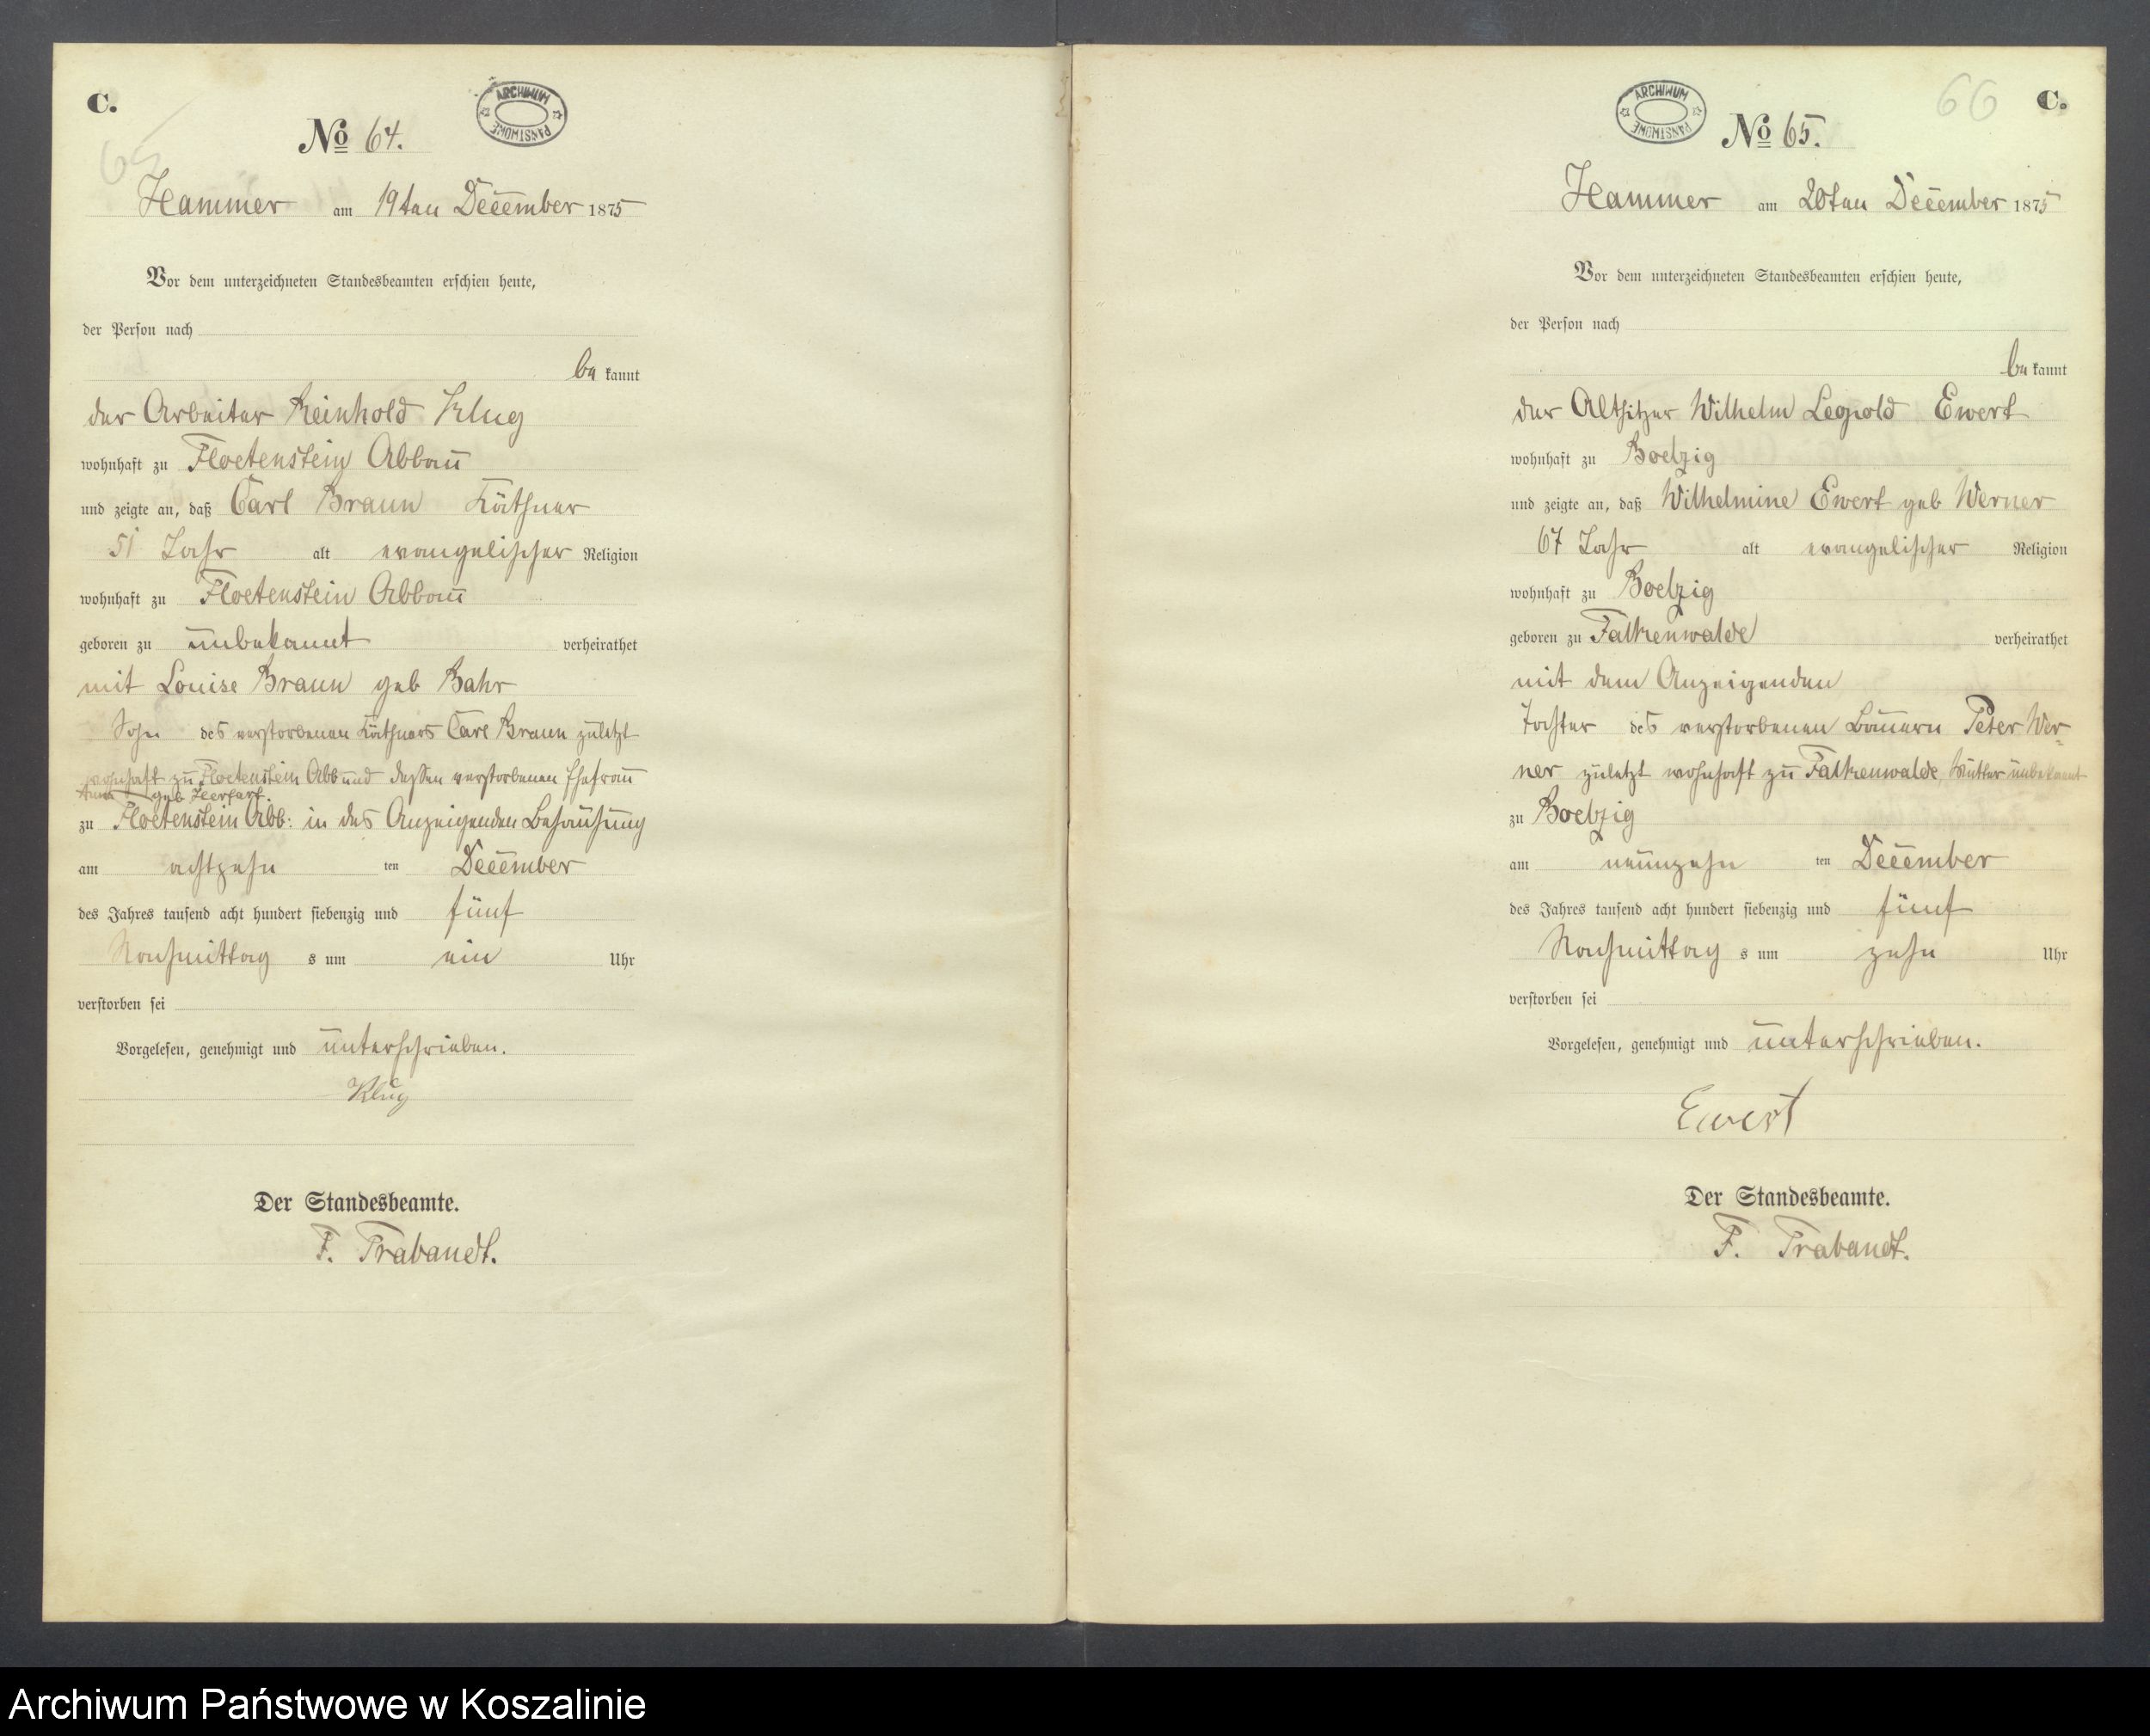 C.
ARCHIWUM PAŃSTWOWE
No 64.
65
Hammer am 19ten December 1875
Vor dem unterzeichneten Standesbeamten erschien heute,
der Person nach
be kannt
der Arbeiter Reinhold Klug
wohnhaft zu Floetenstein Abbau
und zeigte an, daß Carl Braun Käthner
51 Jahr alt evangelischer Religion
wohnhaft zu Floetenstein Abbau
geboren zu unbekannt verheirathet
mit Louise Braun geb Bahr
Sohn des verstorbenen Käthners Carl Braun zuletzt
wohnhaft zu Floetenstein Abb und dessen verstorbenen Ehefrau
geb
zu Floetenstein Abb: in des Anzeigenden Behausung
am achtzehn ten December
des Jahres tausend acht hundert siebenzig und fünf
Nachmittag s um ein Uhr
verstorben sei
Vorgelesen, genehmigt und unterschrieben.
Klug
Der Standesbeamte.
F. Trabandt.
C.
66
ARCHIWUM PAŃSTWOWE
No 65.
Hammer am 20ten December 1875
Vor dem unterzeichneten Standesbeamten erschien heute,
der Person nach
be kannt
der Altsitzer Wilhelm Leopold Ewert
wohnhaft zu Boelzig
und zeigte an, daß Wilhelmine Ewert geb Werner
67 Jahr alt evangelischer Religion
wohnhaft zu Boelzig
geboren zu Falkenwalde verheirathet
mit dem Anzeigenden
Tochter des verstorbenen Bauern Peter Wer-
ner zuletzt wohnhaft zu Falkenwalde, Mutter unbekannt
zu Boelzig
am neunzehn ten December
des Jahres tausend acht hundert siebenzig und fünf
Nachmittag s um zehn Uhr
verstorben sei
Vorgelesen, genehmigt und unterschrieben.
Ewert
Der Standesbeamte.
F. Trabandt.
Archiwum Państwowe w Koszalinie